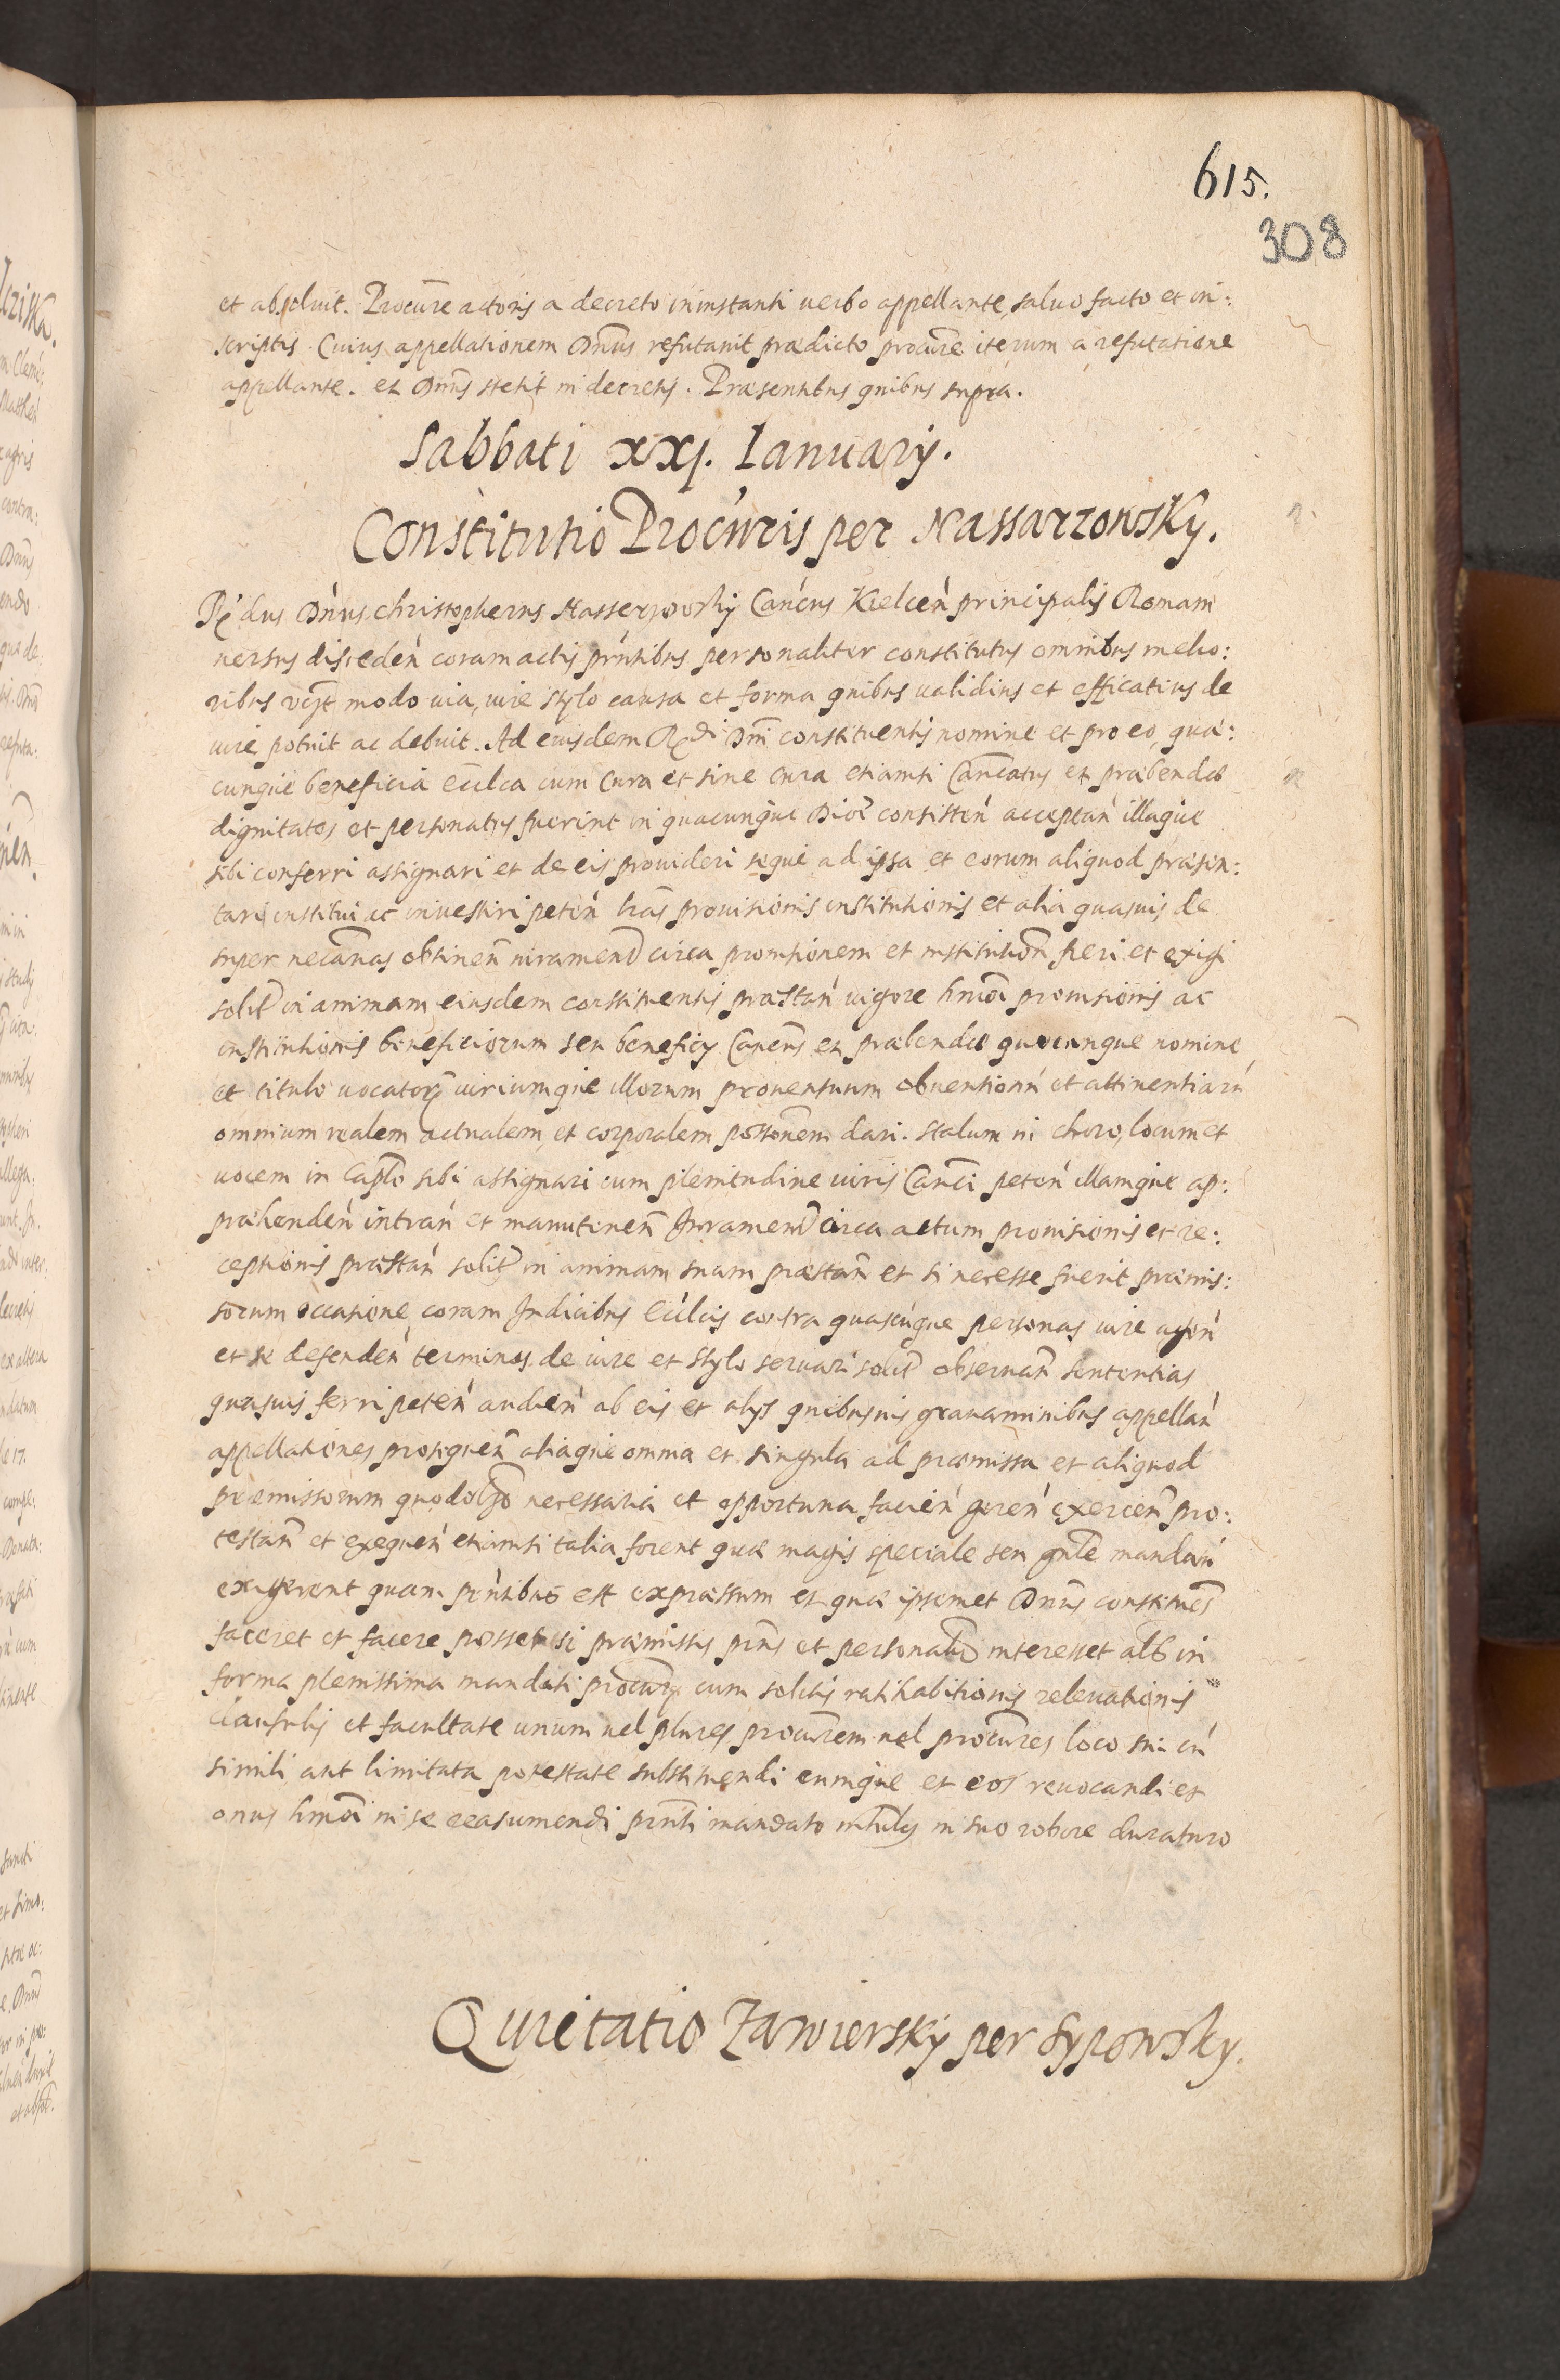 615.
308
et absoluit. Procūre actoris a decreto in instanti uerbo appellante, saluo facto et in:
scriptis. Cuius appellationem Dn̄us refutauit prædicto procūre iterum a refutatione
appellante. et Dn̄us stetit in decretis. Præsentibus quibus supra.
Sabbati xxj. Ianuarij.
Constitutio Procūris per Nassarzowskÿ.
Rn̄dus Dn̄us Christopherus Nasserzowskij Canc̄us Kielceń principalis Romam
uersus disceden̄ coram actis pn̄tibus personaliter constitutus omnibus melio:
ribus modo uia, iure stylo causa et forma quibus ualidius et efficatius de
iure potuit ac debuit. Ad eiusdem Rn̄di Dn̄i constituentis nomine et pro eo, quæ:
cunque beneficia eccl̄ca cum cura et sine cura etiamsi Canc̄atus et præbendæ
dignitates et personatus fuerint in quacunque Dioc̄ consisteń acceptań illaque
sibi conferri assignari et de eis prouideri seque ad ipsa et eorum aliquod præsen:
tari institui ac inuestiri peteń lr̄as prouisionis institutionis et alia quasuis de
super necar̄ias obtineń iuramen̄ circa prouisionem et institution̄ fieri et exigi
solit̄ in animam eiusdem constituentis præstań uigore hmōi prouisionis ac
institutionis beneficiorum seu beneficij Canctus et præbendæ quocunque nomine
et titulo uocator̄ iuriumque illorum prouentuum obuentionū et attinentiarū
omnium realem actualem et corporalem possonem dari. stalum in choro, locum et
uocem in Caplō sibi assignari cum plenitudine iuris Canc̄i peteń illamque ap:
præhendeń intrań et manutineń Iuramen̄ circa actum prouisionis et re:
ceptionis præstań solit̄ in animam suam præstań et si necesse fuerit præmis:
sorum occasione coram Iudicibus eccl̄cis contra quascūque personas iure ageń
et se defendeń terminos de iure et stylo seruari solit̄ obseruań sententias
quasuis ferri peteń audień ab eis et alijs quibusuis grauaminibus appellań
appellationes prosequeń aliaque omnia et singula ad præmissa et aliquod
præmissorum quodol̄zo necessaria et opportuna facień gereń exerceń pro:
testań et exequeń etiamsi talia forent quæ magis speciale seu gn̄le mandatū
exigerent quam pn̄tibus est expressum et quæ ipsemet Dn̄us constituēs
faceret et facere posset si præmissis pn̄s et personalit̄ interesset als̄ in
forma plenissima mandati procur̄ cum solitis ratihabitionis releuationis
clausulis et facultate unum uel plures procūrem uel procūres loco sui cū
simili aut limitata potestate substituendi eumque et eos reuocandi et
onus hmōi in se reasumendi pn̄ti mandato nihils̄ in suo robore duraturo
Quietatio Zawierskÿ per Sypowsky.